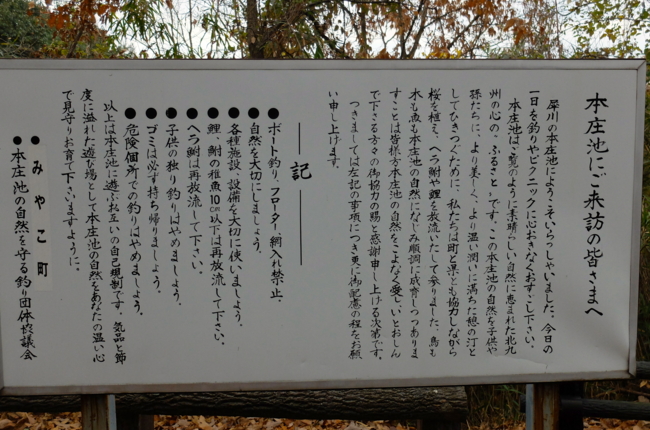 本庄池にご来訪の皆さまへ
犀川の本庄池にようこそいらっしゃいました、今日の
一日を釣りやピクニックに心おきなくおすごし下さい。
本庄池はご覧のように素晴らしい自然に恵まれた北九
州の心の、ふるさと、です。この本庄池の自然を子供や
孫たちに、より美しく、より温い潤いに満ちた憩の汀と
してひきつぐために、私たちは町と県とも協力しながら
桜を植え、ヘラ鮒や鯉を放流いたして参りました、鳥も
木も魚も本庄池の自然になじみ順調に成育しつつありま
すことは皆様方本庄池の自然をこよなく愛しいとおしん
で下さる方々の御協力の賜と感謝申し上げる次第です。
つきましては左記の事項につき更に御配慮の程をお願
い申し上げます。
記
●ボート釣り、フローター、網入れ禁止。
●自然を大切にしましょう。
●各種施設、設備を大切に使いましょう。
●鯉、鮒の稚魚10cm以下は再放流して下さい。
●ヘラ鮒は再放流して下さい。
●子供の独り釣りはやめましょう。
●ゴミは必ず持ち帰りましょう。
●危険個所での釣りはやめましょう。
以上は本庄池に遊ぶお互いの自己規制です、気品と節
度に溢れた遊び場として本庄池の自然をあなたの温い心
で見守りお育て下さいますように。
●みやこ町
●本庄池の自然を守る釣り団体協議会